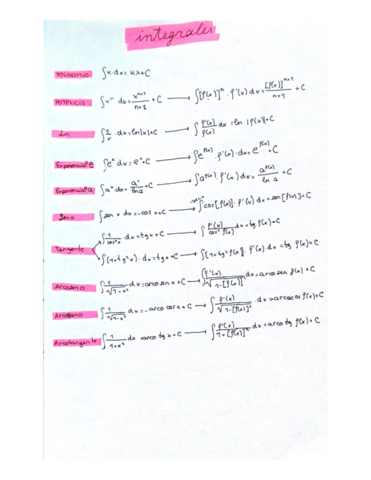 integrales
Polinomio ∫k dx = kx + C
Potencia ∫xⁿ dx = xⁿ⁺¹/n+1 + C → ∫[f(x)]ⁿ · f'(x) dx = [f(x)]ⁿ⁺¹/n+1 + C
Ln ∫1/x · dx = ln|x| + C → ∫f'(x)/f(x) dx = ln |f(x)| + C
Exponencial e ∫eˣ dx = eˣ + C → ∫e^f(x) · f'(x) · dx = e^f(x) + C
Exponencial a ∫aˣ dx = aˣ/ln a + C → ∫a^f(x) · f'(x) dx = a^f(x)/ln a + C
Seno ∫sen x dx = -cos x + C → ∫cos[f(x)] · f'(x) dx = sen[f(x)] + C
Tangente ∫1/cos²x dx = tg x + C → ∫f'(x)/cos² f(x) dx = tg f(x) + C
∫(1+tg²x) · dx = tg x + C → ∫[1+tg² f(x)] · f'(x) dx = tg f(x) + C
Arcoseno ∫1/√1-x² dx = arcosen x + C → ∫f'(x)/√1-[f(x)]² dx = arcosen f(x) + C
∫1/√1-x² dx = -arcocos x + C → ∫f'(x)/√1-[f(x)]² dx = arcocos f(x) + C
Arcotangente ∫1/1+x² dx = arcotg x + C → ∫f'(x)/1-[f(x)]² dx = arco tg f(x) + C